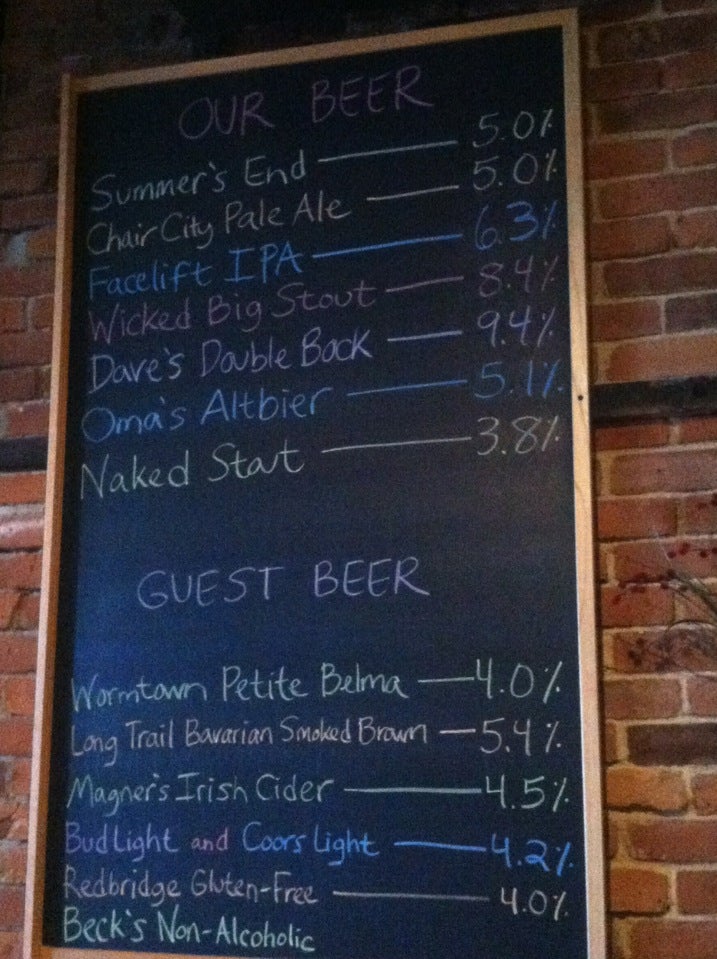 OUR BEER
Summer's End 5.0%
Chair City Pale Ale 5.0%
Facelift IPA 6.3%
Wicked Big Stout 8.4%
Dave's Double Bock 9.4%
Oma's Altbier 5.1%
Naked Stout 3.8%
GUEST BEER
Wormtown Petite Belma 4.0%
Long Trail Bavarian Smoked Brown 5.4%
Magner's Irish Cider 4.5%
Bud Light and Coors Light 4.2%
Redbridge Gluten-Free 4.0%
Beck's Non-Alcoholic